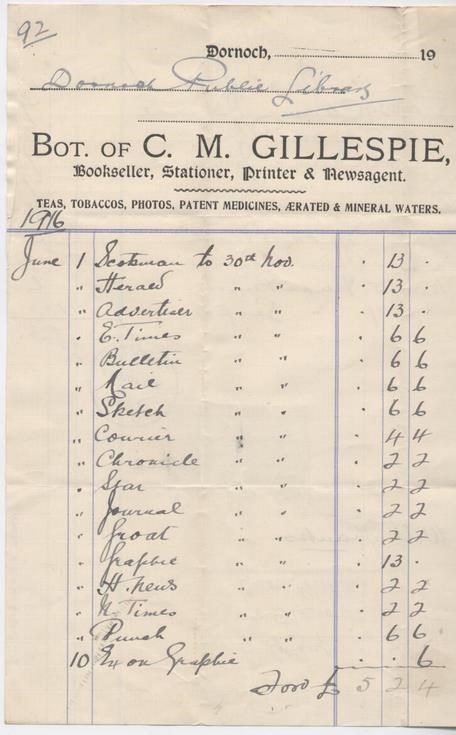 92
Dornoch, 19
Dornoch Public Library
BOT. OF C. M. GILLESPIE,
Bookseller, Stationer, Printer & Newsagent.
TEAS, TOBACCOS, PHOTOS, PATENT MEDICINES, ÆRATED & MINERAL WATERS.
1916
June 1 Scotsman to 30th Nov. . 13 .
" Herald " " . 13 .
" Advertiser " " . 13 .
" E. Times " " . 6 6
" Bulletin " " . 6 6
" Mail " " . 6 6
" Sketch " " . 6 6
" Courier " " . 4 4
" Chronicle " " . 2 2
" Star " " . 2 2
" Journal " " . 2 2
" Groat " " . 2 2
" Graphic " " . 13 .
" H. News " " . 2 2
" N. Times " " . 2 2
" Punch " " . 6 6
10 Ex on Graphic . . 6
Ford £ 5 2 4